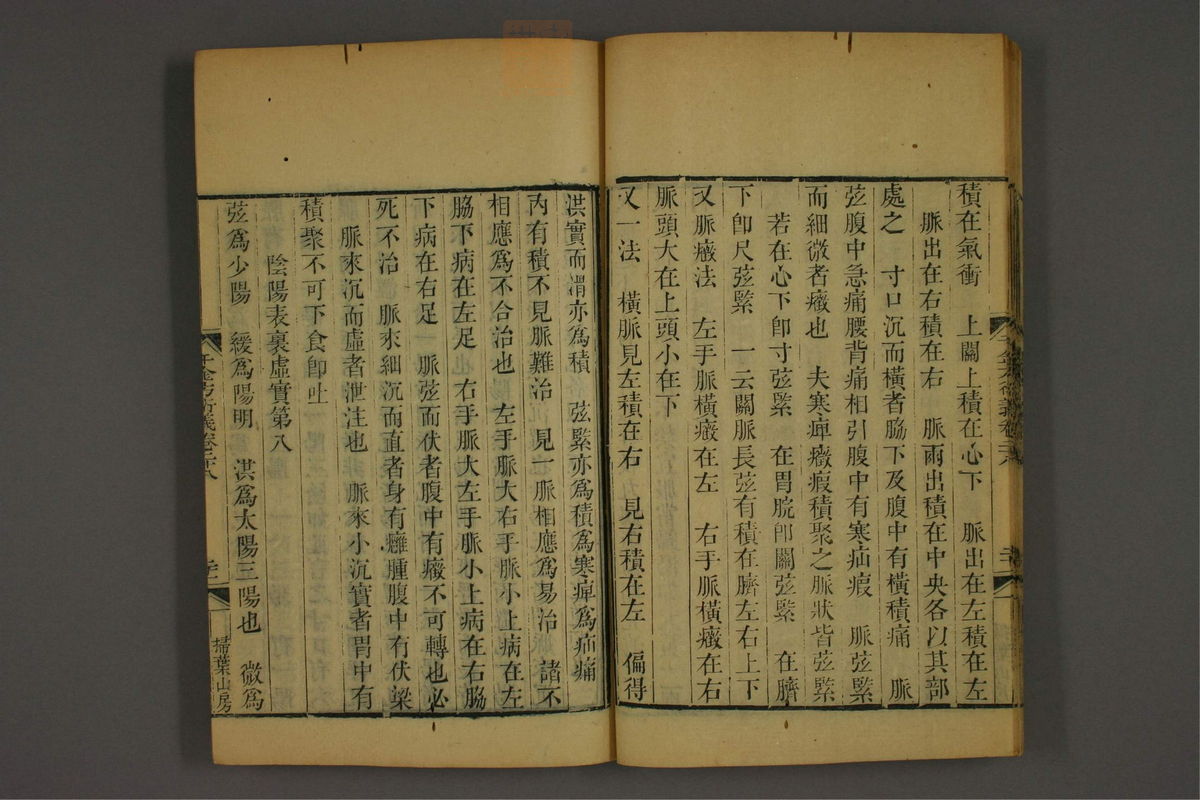 積在氣衝　上關上積在心下　脈出在左積在左
脈出在右積在右　脈兩出積在中央各以其部
處之　寸口沉而橫者脇下及腹中有橫積痛　脈
弦腹中急痛腰背痛相引腹中有寒疝瘕　脈弦緊
而細微者癥也　夫寒痺癥瘕積聚之脈狀皆弦緊
若在心下卽寸弦緊　在胃脘卽關弦緊　在臍
下卽尺弦緊　一云關脈長弦有積在臍左右上下
又脈癥法　左手脈橫癥在左　右手脈橫癥在右
脈頭大在上頭小在下
又一法　橫脈見左積在右　見右積在左　偏得
洪實而滑亦爲積　弦緊亦爲積爲寒痺爲疝痛
內有積不見脈難治　見一脈相應爲易治　諸不
相應爲不合治也　左手脈大右手脈小上病在左
脇下病在左足　右手脈大左手脈小上病在右脇
下病在右足　脈弦而伏者腹中有癥不可轉也必
死不治　脈來細沉而直者身有癰腫腹中有伏梁
脈來沉而虛者泄注也　脈來小沉實者胃中有
積聚不可下食卽吐
陰陽表裏虛實第八
弦爲少陽　緩爲陽明　洪爲太陽三陽也　微爲
千金方衍義卷二十八
掃葉山房